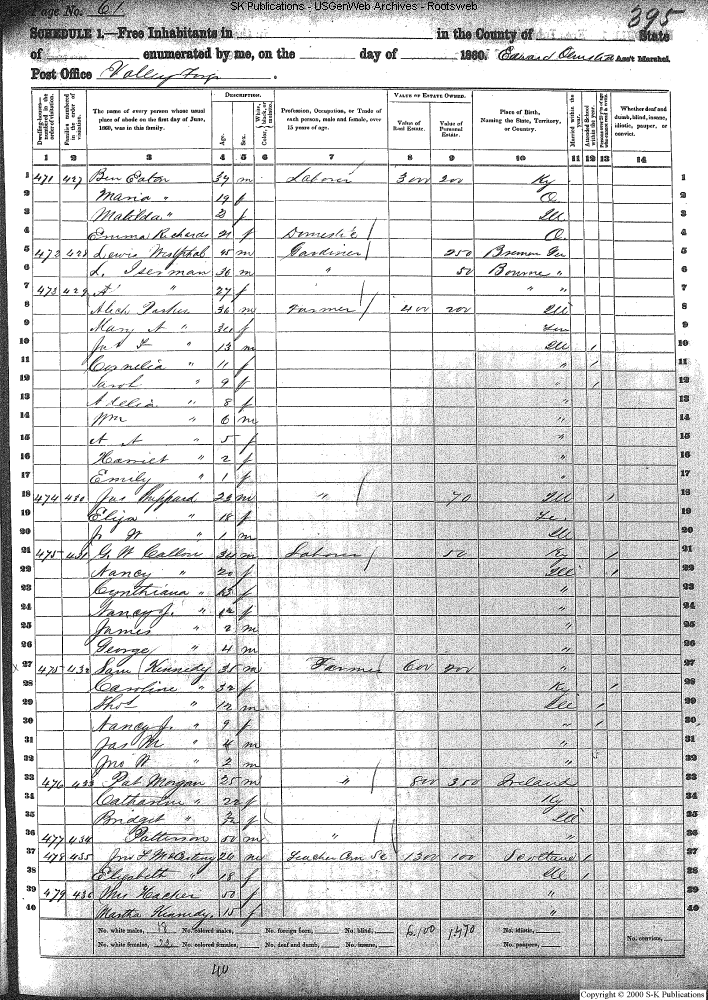 SK Publications - USGenWeb Archives - Rootsweb
Page No. 61
395
SCHEDULE 1.—Free Inhabitants in in the County of State
of enumerated by me, on the day of 1860. Edward Ass't Marshal.
Post Office Valley Forge.
Dwelling-houses—numbered in the order of visitation.
Families numbered in the order of visitation.
The name of every person whose usual place of abode on the first day of June, 1860, was in this family.
DESCRIPTION.
Age.
Sex.
Color, White, black, or mulatto.
Profession, Occupation, or Trade of each person, male and female, over 15 years of age.
VALUE OF ESTATE OWNED.
Value of Real Estate.
Value of Personal Estate.
Place of Birth, Naming the State, Territory, or Country.
Married within the year.
Attended School within the year.
Whether deaf and dumb, blind, insane, idiotic, pauper, or convict.
1 2 3 4 5 6 7 8 9 10 11 12 13 14
1 471 427 Ben Eaton 37 m Laborer 300 200 Ky 1
2 Maria " 19 f O. 2
3 Matilda " 2 f Ill 3
4 Emma Richards 21 f Domestic O. 4
5 472 428 Lewis Westphal 45 m Gardiner 250 Bremen Ger 5
6 L. Iserman 36 m " 50 " 6
7 473 429 A " 27 f " " 7
8 Alech Parker 36 m Farmer 400 200 Ill 8
9 Mary A " 30 f 9
10 Jas F " 13 m Ill 1 10
11 Cornelia " 11 f " 1 11
12 Sarah " 9 f " 1 12
13 Adelia " 8 f " 13
14 Wm " 6 m " 14
15 A A " 5 f " 15
16 Harriet " 2 f " 16
17 Emily " 1 f " 17
18 474 430 Jas 23 m " 70 Ill 1 18
19 Eliza " 18 f 19
20 W " 1 m Ill 20
21 475 431 G. W Callon 34 m Laborer 50 Ky 1 21
22 Nancy " 20 f Ill 1 22
23 Cynthiana " 13 f " 23
24 Nancy J. " 12 f " 24
25 James " 2 m " 25
26 George " 4 m " 26
27 475 432 Sam Kennedy 35 m Farmer 600 200 " 27
28 Caroline " 32 f Ky 1 28
29 Thos " 12 m Ill 1 29
30 Nancy J. " 9 f " 1 30
31 Jas M " 4 m " 31
32 Jno W " 2 m " 32
33 476 433 Pat Morgan 25 m " 800 350 Ireland 33
34 Catharine " 22 f Ky 34
35 Bridget " f Ill 35
36 477 434 Patterson 50 m " " 36
37 478 435 Jno F 26 m Teacher Com Sc 1300 100 Scotland 1 37
38 Elizabeth " 18 f Ill 1 38
39 479 436 Hacher 50 f " 39
40 Martha Kennedy 15 f " 40
No. white males, 18 No. colored males, No. foreign born, No. blind, 6,100 1470 No. idiotic,
No. white females, 22 No. colored females, No. deaf and dumb, No. insane, No. paupers, No. convicts,
40
Copyright © 2000 S-K Publications